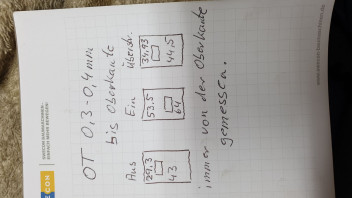 OT 0,3-0,4mm
bis Oberkante
Aus Ein Überstr.
29,3 53,5 39,93
43 64 44,5
immer von der Oberkante
gemessen.
COM